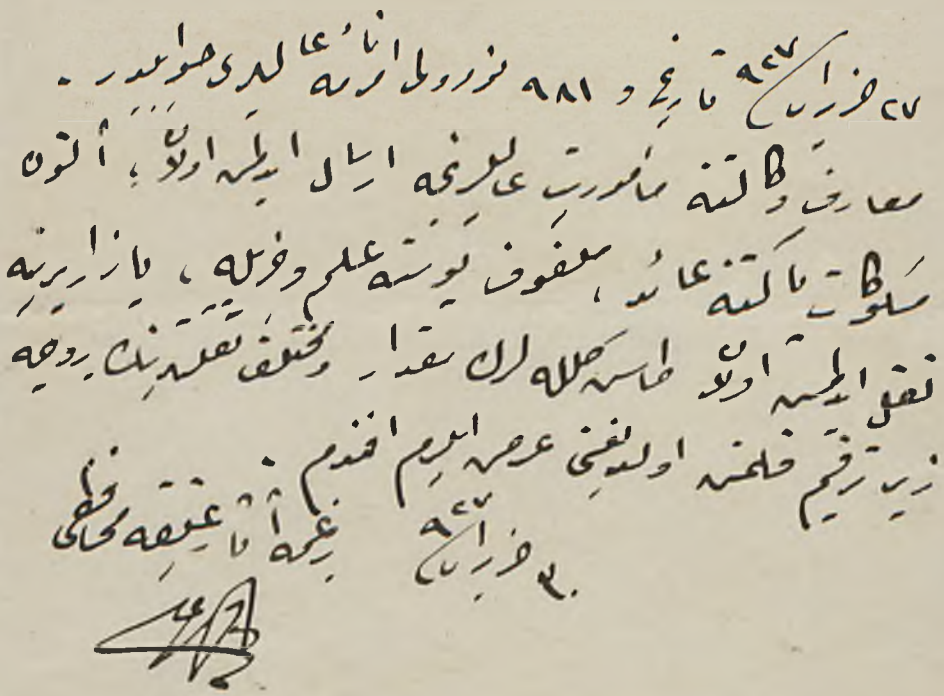 ٢٧ حزيران ٩٢٧ تاريخ و ٩٨١ نومرولى امرنامهٔ عاليلرى جوابيدر.
معارف وكالتنه مأموريت عاليلرنجه ارسال ايدلمش اولان، آلتون
مسكوكات پاكتنه عائد، ملفوف پوسته علم وخبريله،
نقل ايدلمش اولان طاش كلله لرك مقدار ومختلف ثقلتلرينك بروجه
زير ترقيم قلنمش اولديغنى عرض ايلرم افندم.
٣٠ حزيران ٩٢٧ آثار عتيقه محافظى